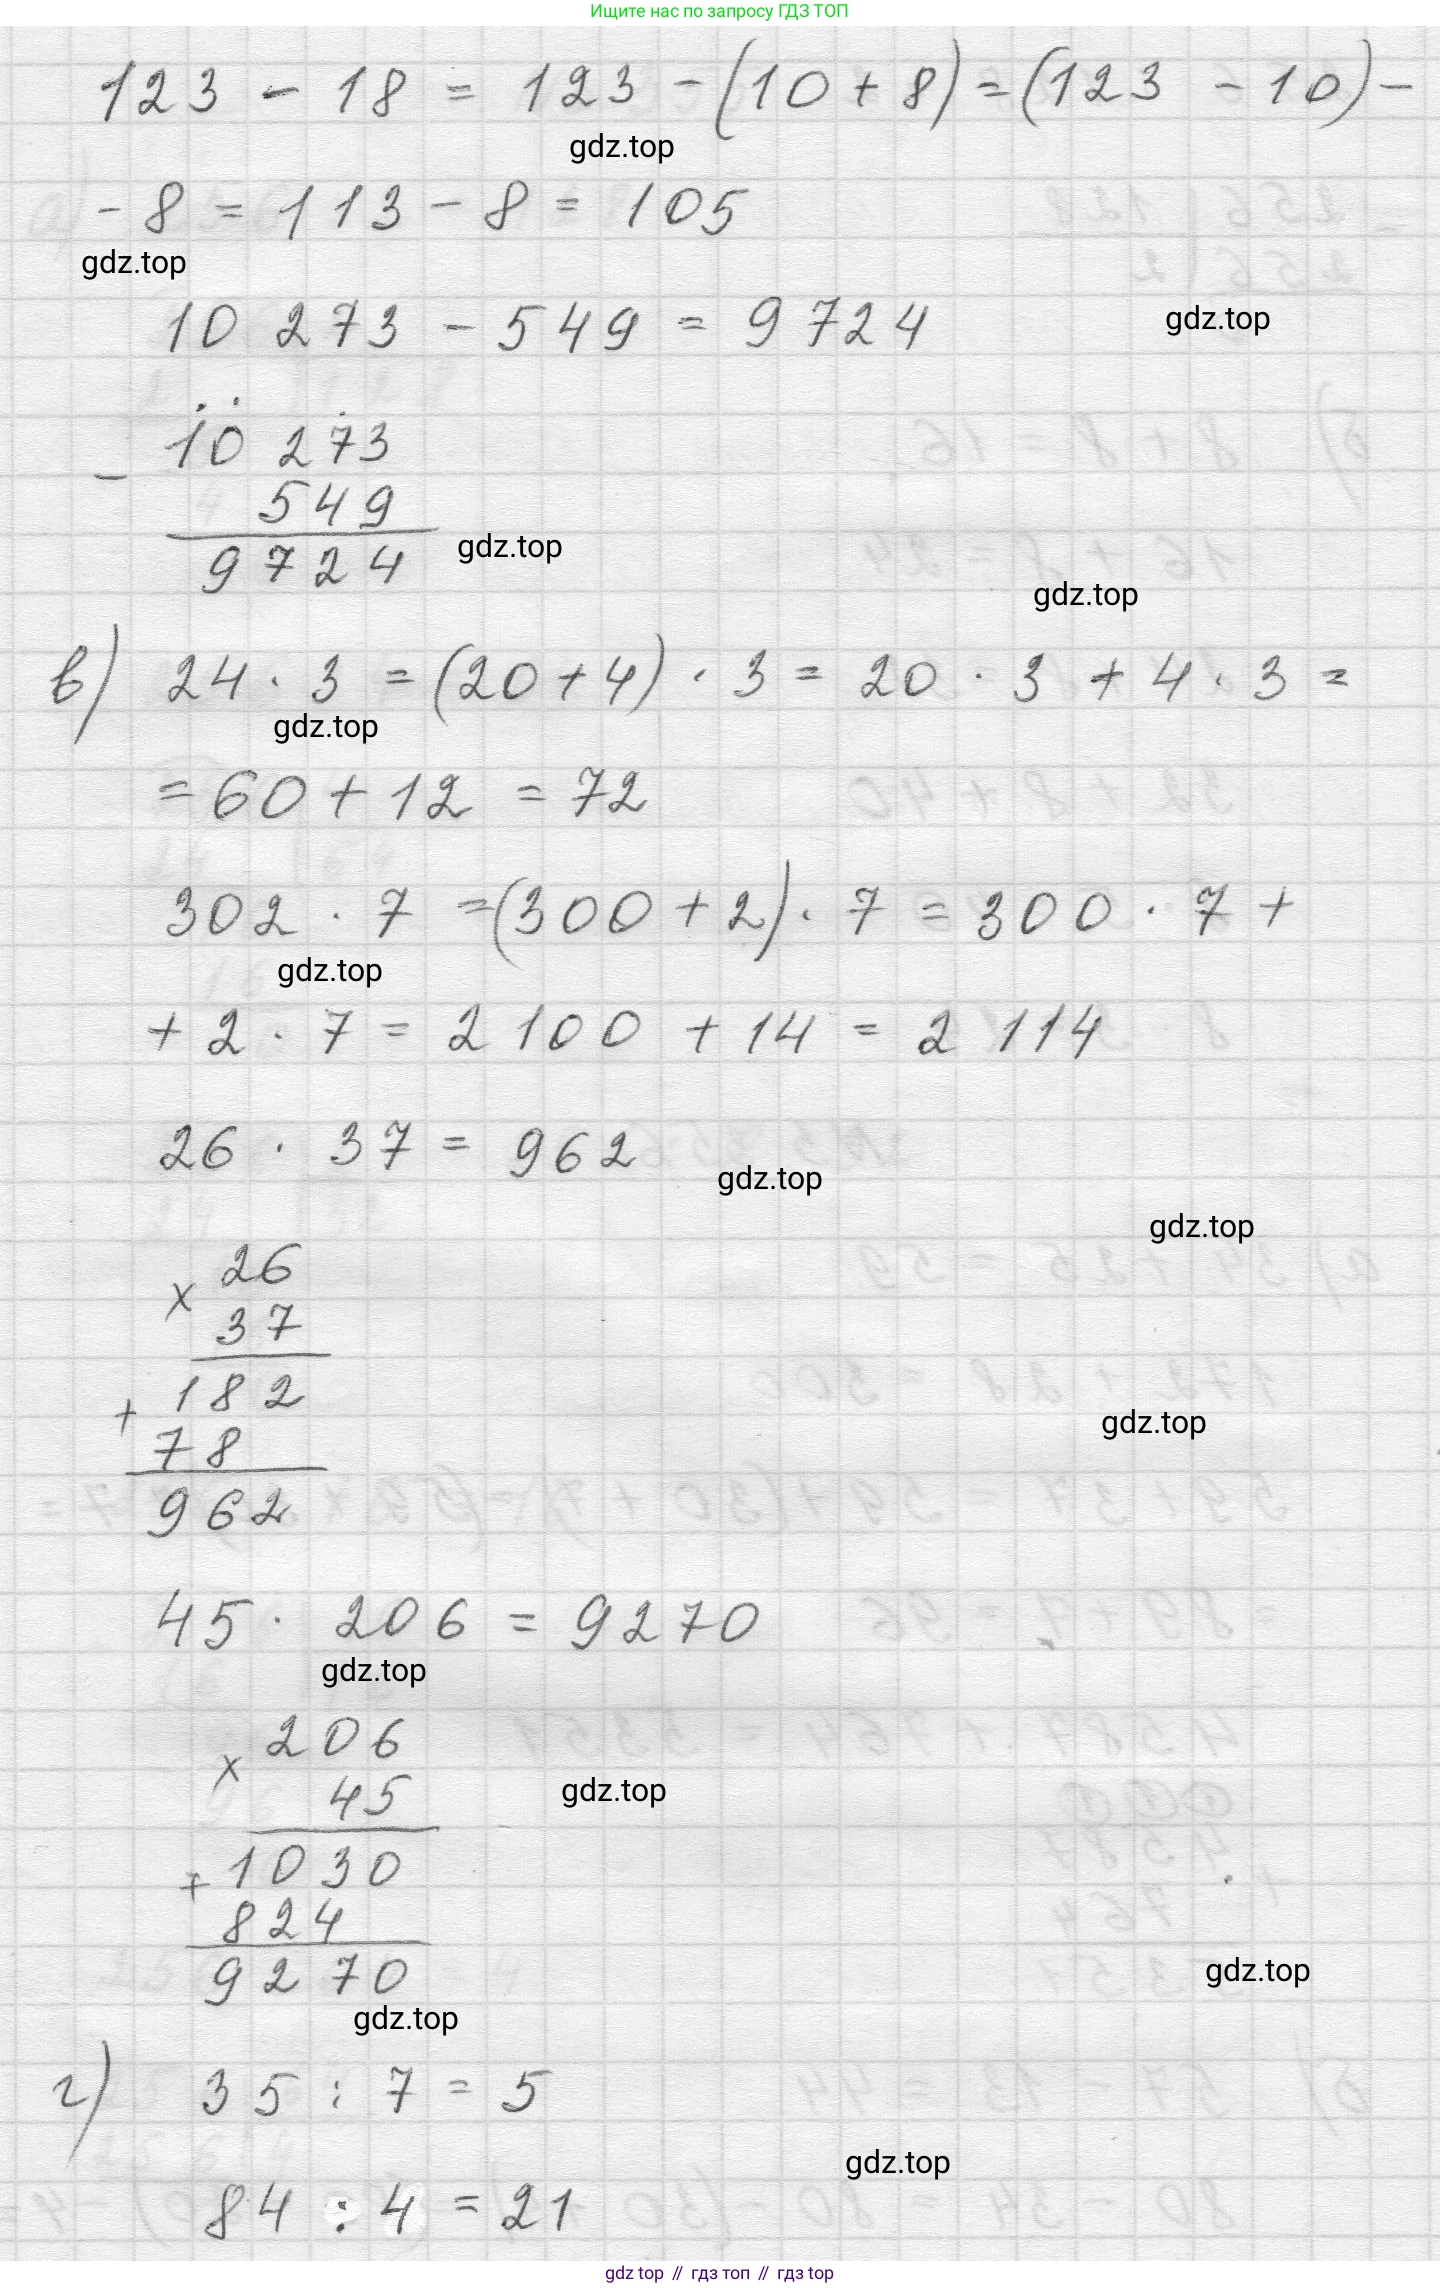 Ищите нас по запросу ГДЗ ТОП
123 - 18 = 123 - (10 + 8) = (123 - 10) -
gdz.top
- 8 = 113 - 8 = 105
gdz.top
10 273 - 549 = 9 724
gdz.top
10 273
-
549
9724
gdz.top
gdz.top
в) 24 · 3 = (20 + 4) · 3 = 20 · 3 + 4 · 3 =
gdz.top
= 60 + 12 = 72
302 · 7 = (300 + 2) · 7 = 300 · 7 +
gdz.top
+ 2 · 7 = 2 100 + 14 = 2 114
26 · 37 = 962
gdz.top
gdz.top
26
×
37
182
+
78
gdz.top
962
45 · 206 = 9270
gdz.top
206
×
45
gdz.top
1030
+
824
9270
gdz.top
gdz.top
г) 35 : 7 = 5
gdz.top
84 : 4 = 21
gdz top // гдз топ // гдз top